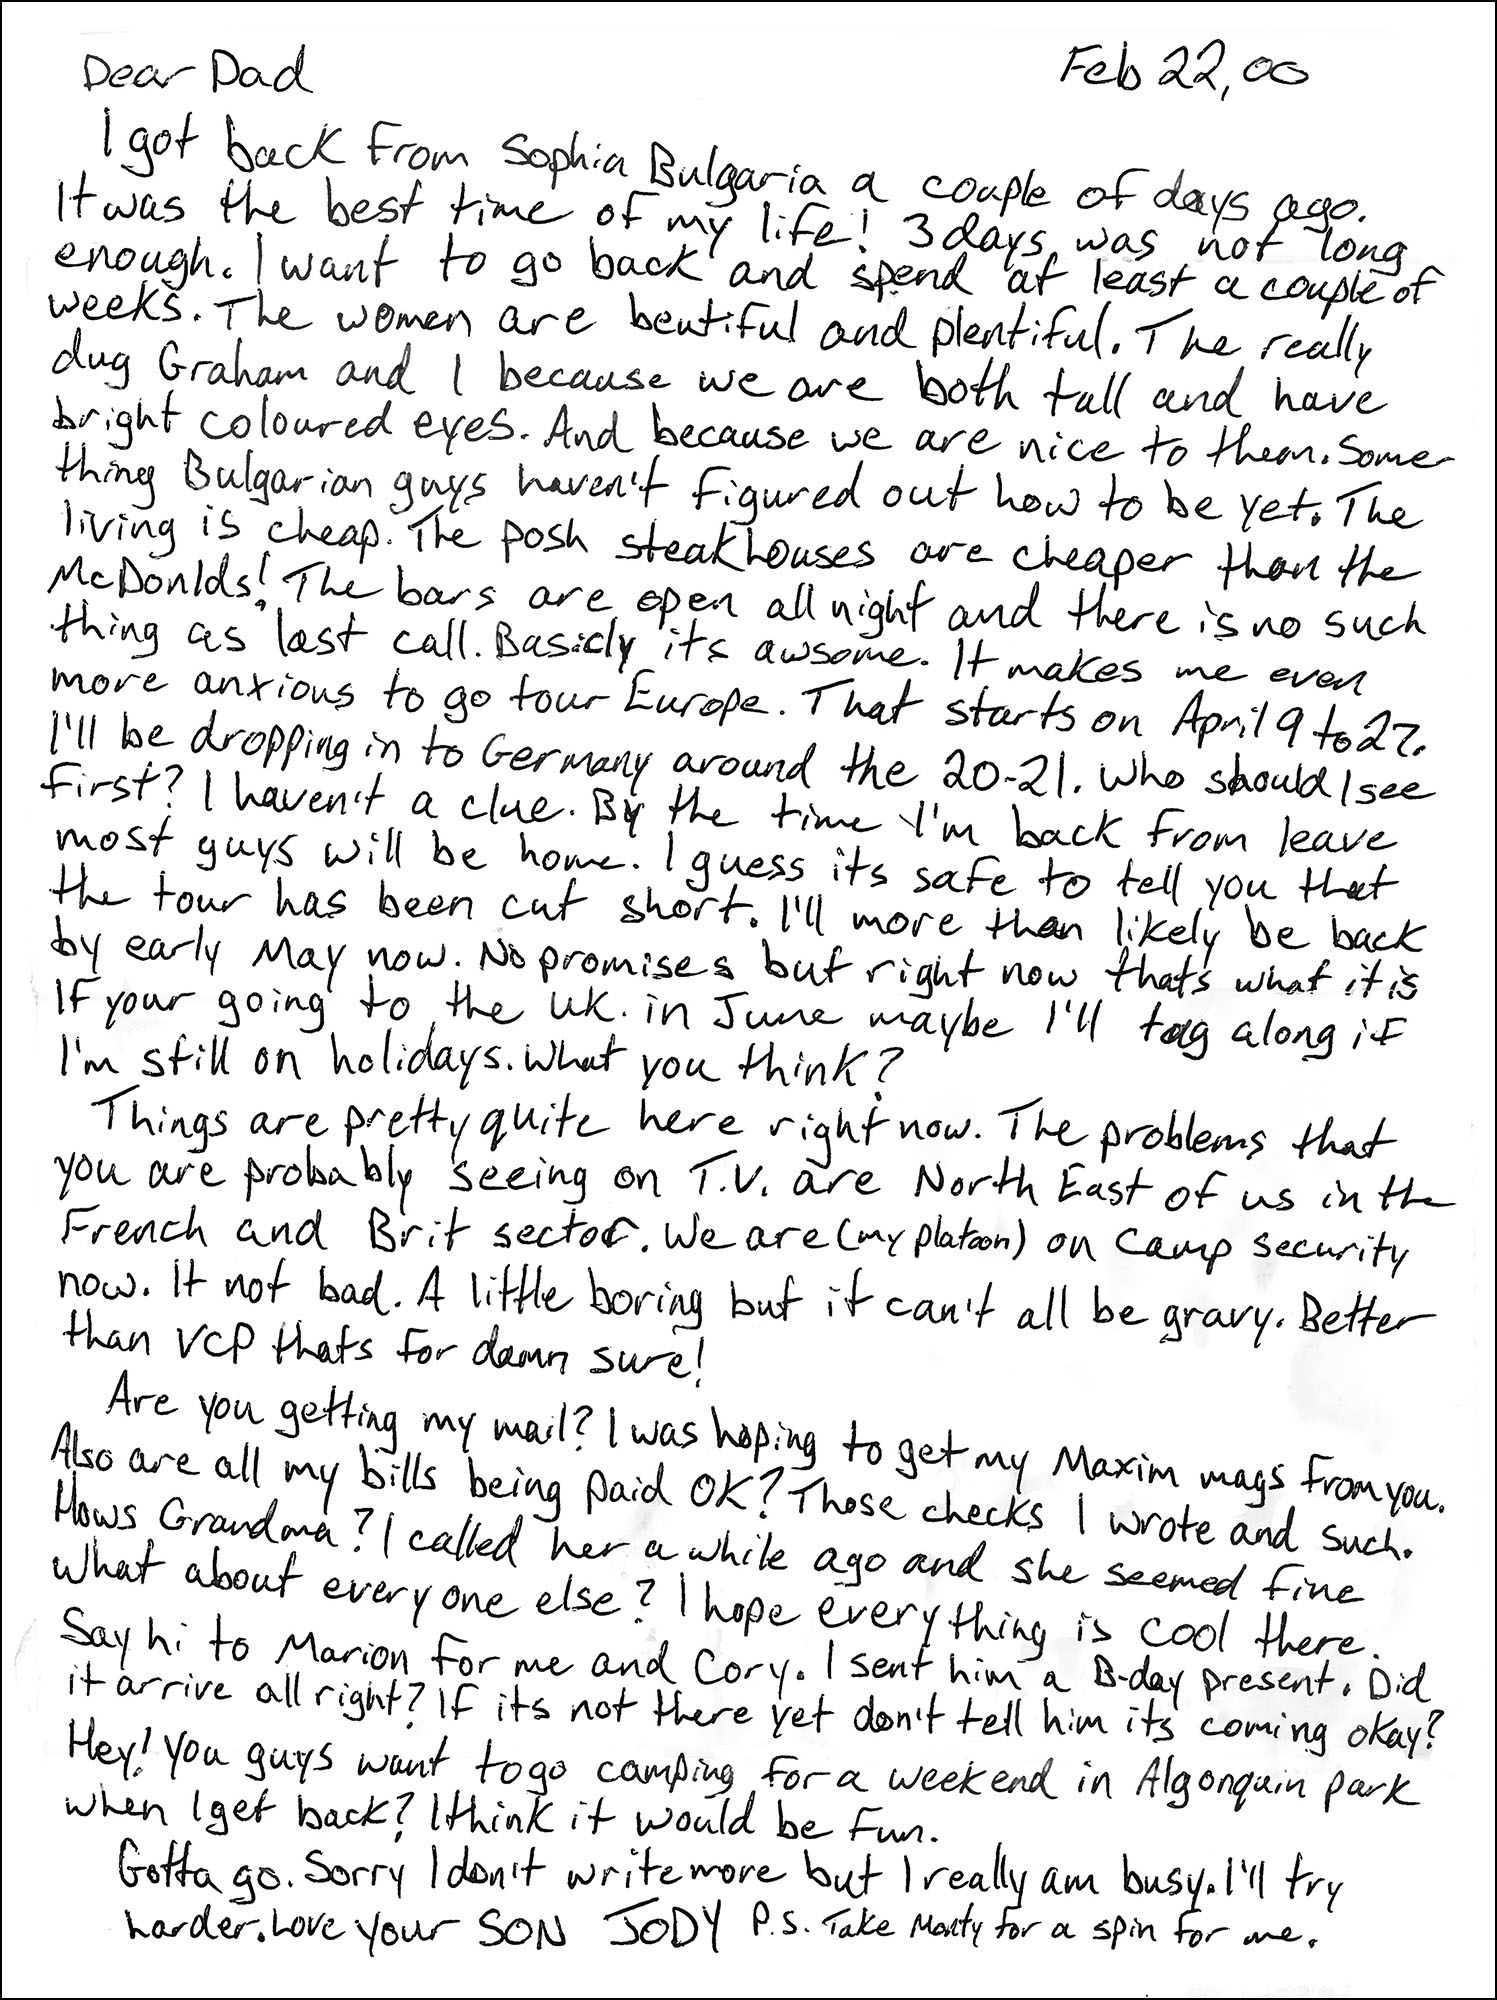 Dear Dad Feb 22, 00
I got back from Sophia Bulgaria a couple of days ago.
It was the best time of my life! 3 days was not long
enough. I want to go back and spend at least a couple of
weeks. The women are beutiful and plentiful. The really
dug Graham and I because we are both tall and have
bright coloured eyes. And because we are nice to them. Some-
thing Bulgarian guys haven't figured out how to be yet. The
living is cheap. The posh steakhouses are cheaper than the
McDonlds! The bars are open all night and there is no such
thing as last call. Basicly its awsome. It makes me even
more anxious to go tour Europe. That starts on April 9 to 27.
I'll be dropping in to Germany around the 20-21. Who should I see
first? I haven't a clue. By the time I'm back from leave
most guys will be home. I guess its safe to tell you that
the tour has been cut short. I'll more than likely be back
by early May now. No promises but right now thats what it is
If your going to the UK. in June maybe I'll tag along if
I'm still on holidays. What you think?
Things are pretty quite here right now. The problems that
you are probably seeing on T.V. are North East of us in the
French and Brit sector. We are (my platoon) on Camp security
now. It not bad. A little boring but it can't all be gravy. Better
than VCP thats for damn sure!
Are you getting my mail? I was hoping to get my Maxim mags from you.
Also are all my bills being paid OK? Those checks I wrote and such.
Hows Grandma? I called her a while ago and she seemed fine
What about everyone else? I hope everything is cool there.
Say hi to Marion for me and Cory. I sent him a B-day present. Did
it arrive all right? If its not there yet don't tell him its coming okay?
Hey! You guys want to go camping for a weekend in Algonquin park
when I get back? I think it would be fun.
Gotta go. Sorry I don't write more but I really am busy. I'll try
harder. Love your SON JODY P.S. Take Monty for a spin for me.